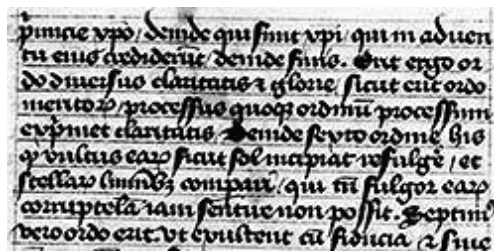 p̄micie xp̄o / deinde qui sunt xp̄i / qui in aduen
tū eius crediderūt / deinde finis. Erit ergo or
do diuersus claritatis ⁊ glorie / sicut erit ordo
meritoꝝ / processus quoqꝫ ordinū processum
exp̄met claritatis / Deinde sexto ordine his
qͥ vultus eaꝝ sicut sol incipiāt refulgē̄ / et
stellaꝝ luminibꝫ compari / qui tn̄ fulgor eaꝝ
corruptela iam sentire non possit. Septimꝰ
vero ordo erit vt exultent cū fiducia / ⁊ sine